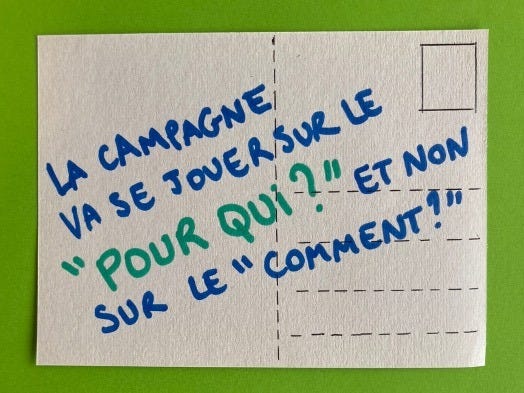 LA CAMPAGNE
VA SE JOUER SUR LE
"POUR QUI?" ET NON
SUR LE "COMMENT?"